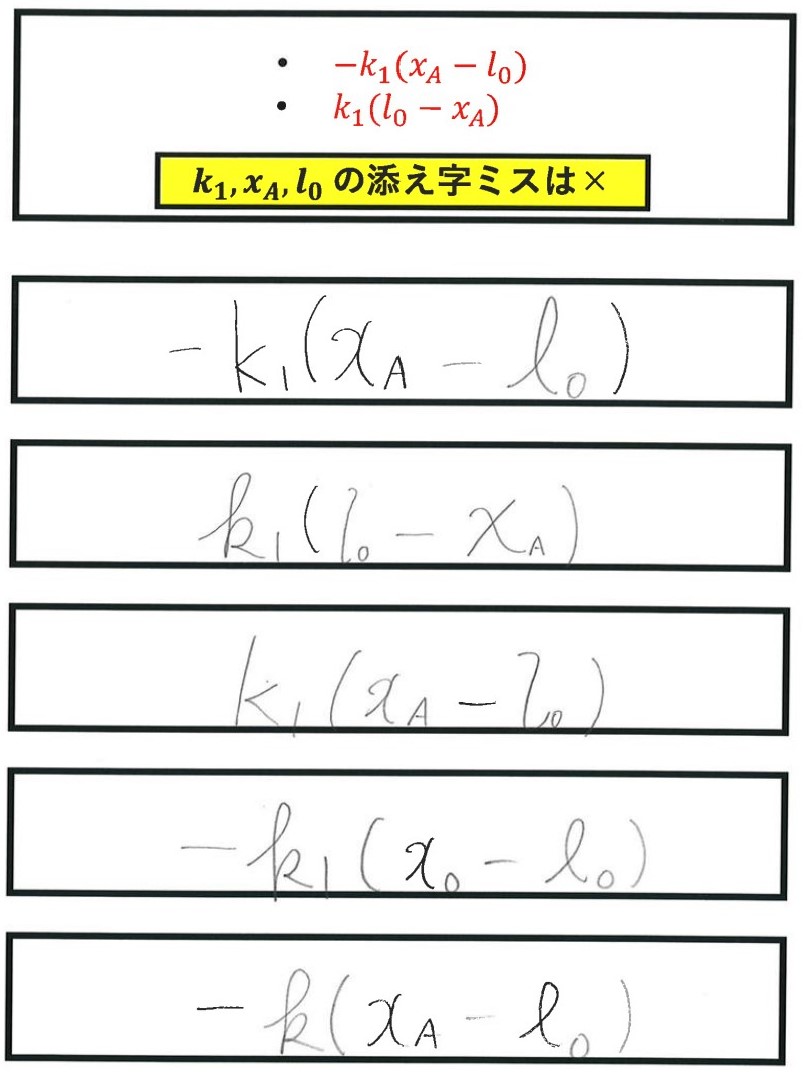 • −k₁(x_A − l₀)
• k₁(l₀ − x_A)
k₁, x_A, l₀ の添え字ミスは×
−k₁(x_A − l₀)
k₁(l₀ − x_A)
k₁(x_A − l₀)
−k₁(x₀ − l₀)
−k(x_A − l₀)